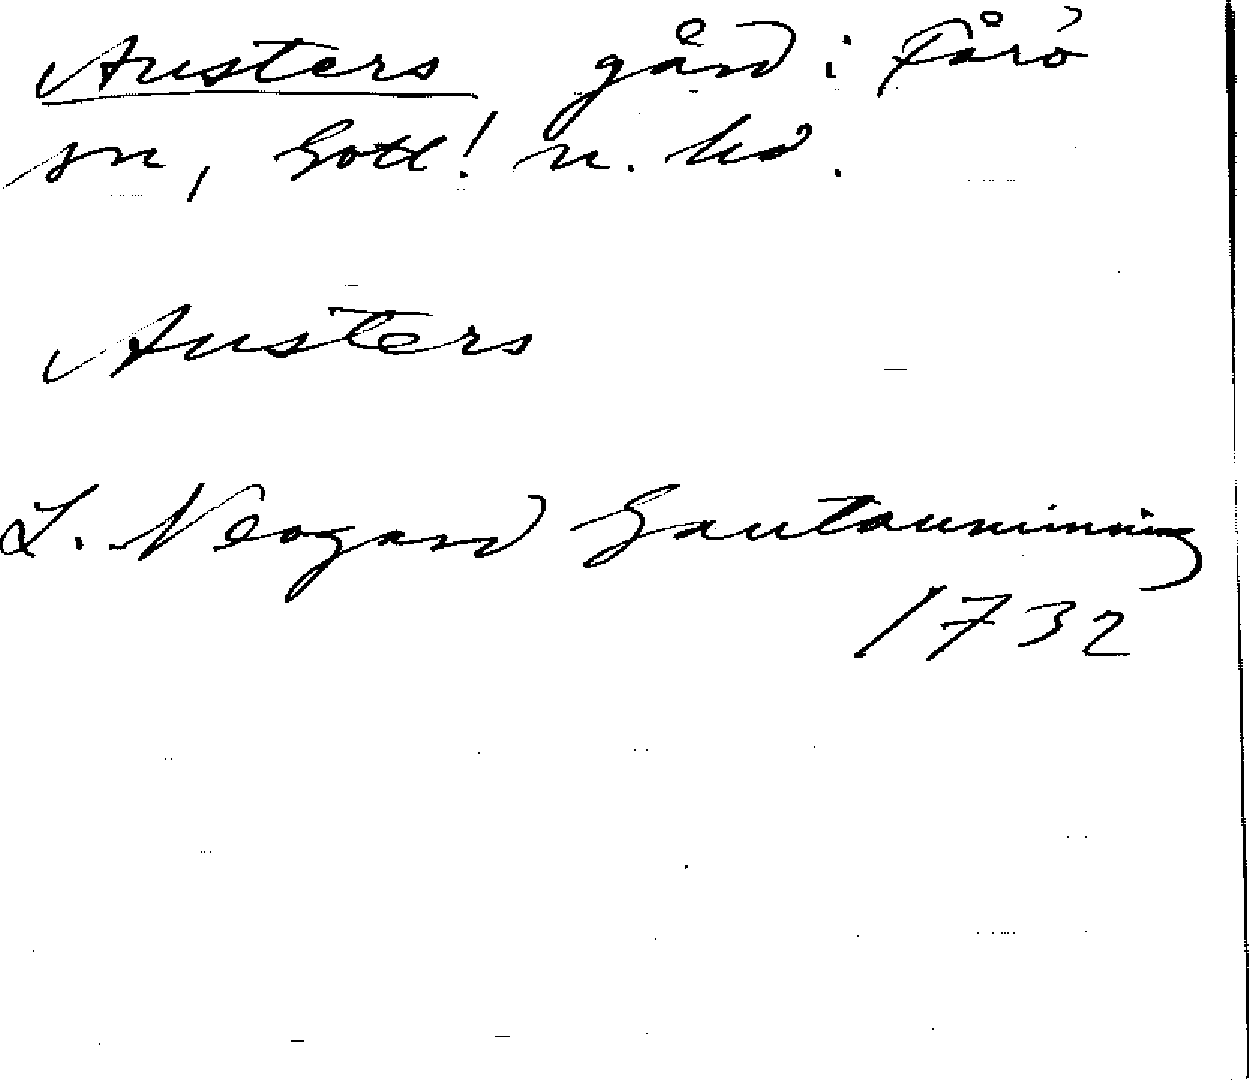 Austers gård i Fårö
sn, Gotl! n. hd.
Austers
L. Neogard Gautauminning
1732